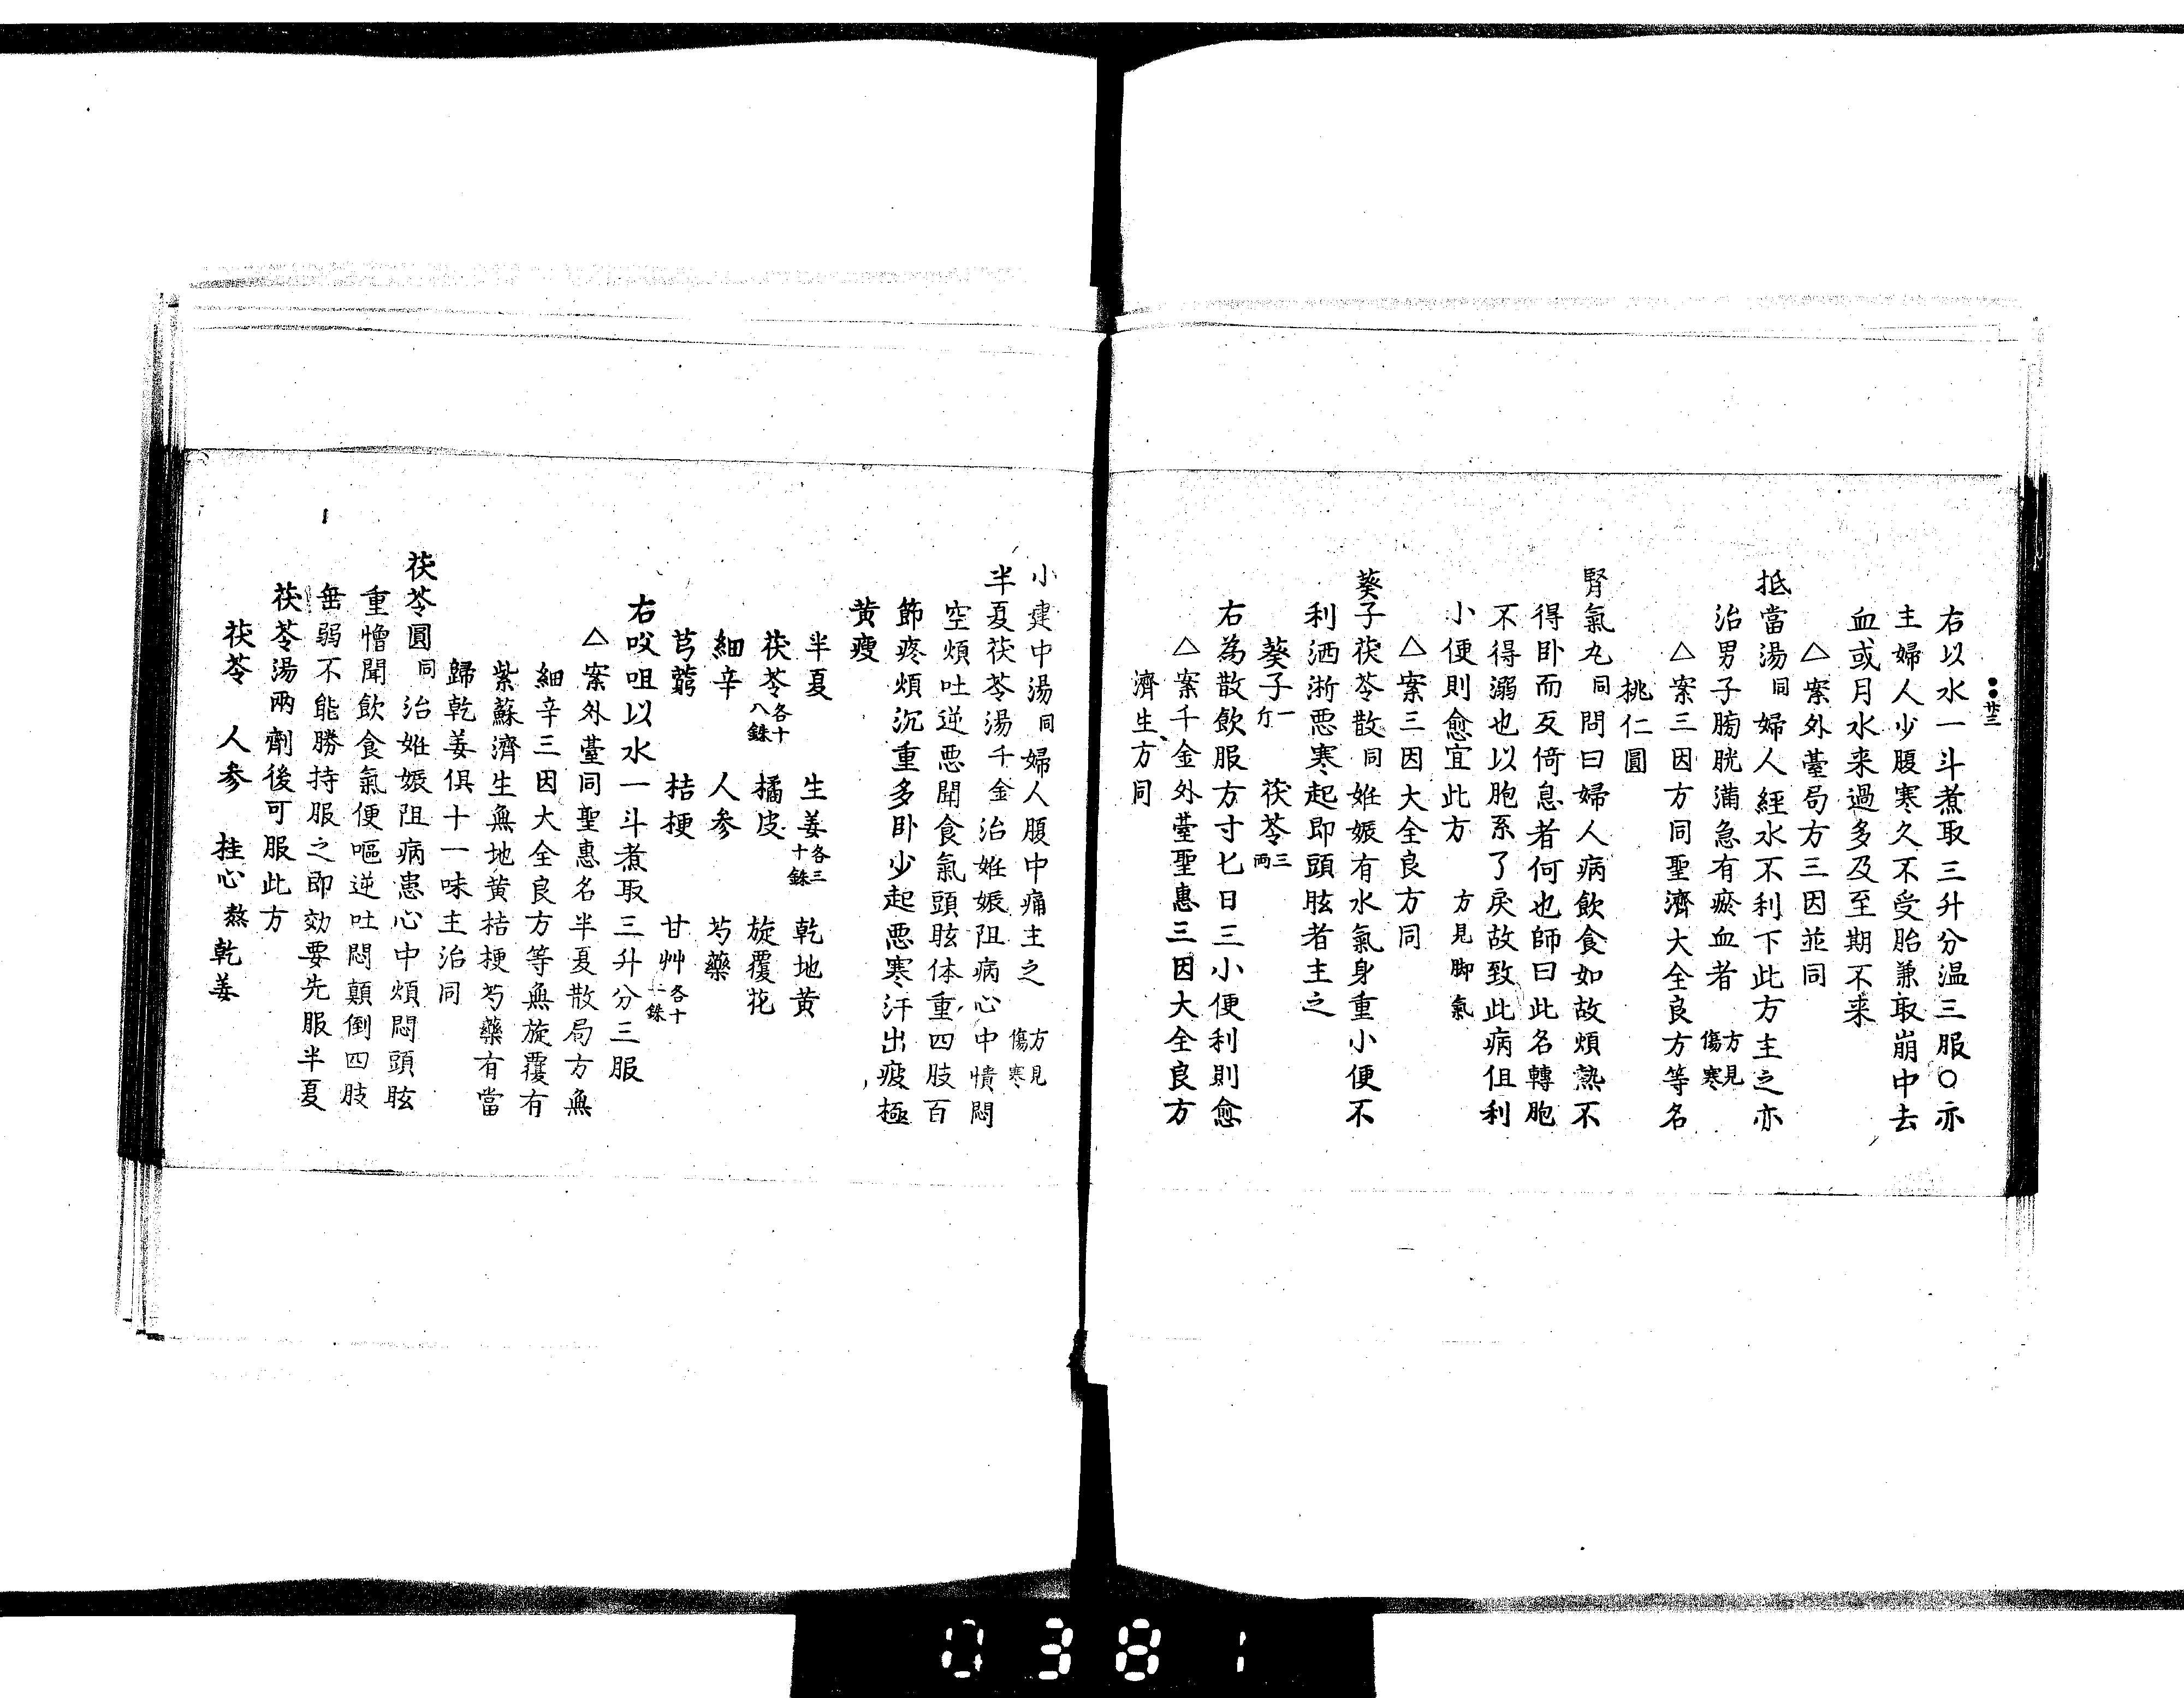 廿三
右以水一斗煮取三升分温三服〇亦
主婦人少腹寒久不受胎兼取崩中去
血或月水来過多及至期不来
△案外臺局方三因並同
抵當湯同婦人經水不利下此方主之亦
治男子膀胱滿急有瘀血者方見傷寒
△案三因方同聖濟大全良方等名
桃仁圓
腎氣丸同問曰婦人病飲食如故煩熱不
得卧而反倚息者何也師曰此名轉胞
不得溺也以胞系了戾故致此病但利
小便則愈宜此方方見脚氣
△案三因大全良方同
葵子茯苓散同妊娠有水氣身重小便不
利洒淅悪寒起即頭眩者主之
葵子一斤 茯苓三両
右為散飲服方寸匕日三小便利則愈
△案千金外臺聖惠三因大全良方
濟生方同
小建中湯同婦人腹中痛主之方見傷寒
半夏茯苓湯千金治妊娠阻病心中憒悶
空煩吐逆悪聞食氣頭眩体重四肢百
節疼煩沉重多卧少起悪寒汗出疲極
黄瘦
半夏 生姜各三十銖 乾地黄
茯苓各十八銖 橘皮 旋覆花
細辛 人参 芍藥
芎藭 桔梗 甘艸各十二銖
右㕮咀以水一斗煮取三升分三服
△案外臺同聖惠名半夏散局方無
細辛三因大全良方等無旋覆有
紫蘇濟生無地黄桔梗芍藥有當
歸乾姜俱十一味主治同
茯苓圓同治妊娠阻病患心中煩悶頭眩
重憎聞飲食氣便嘔逆吐悶顛倒四肢
垂弱不能勝持服之即効要先服半夏
茯苓湯兩劑後可服此方
茯苓 人参 桂心熬 乾姜
0381